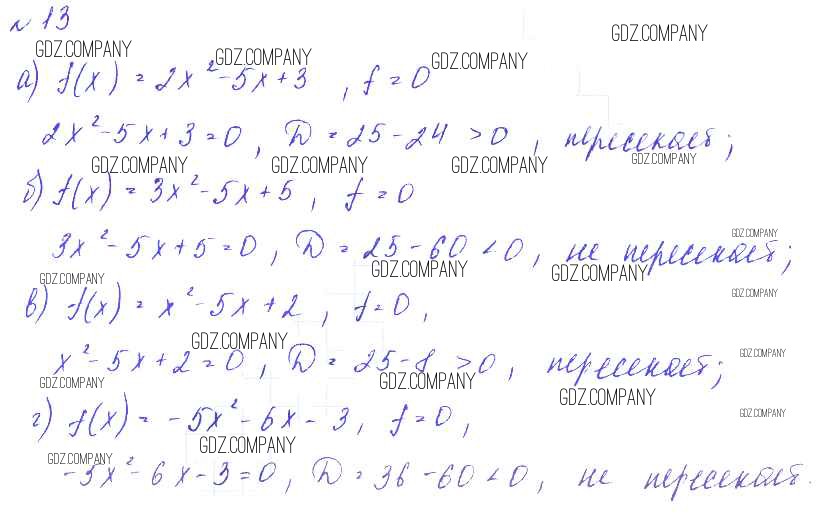 № 13
GDZ.COMPANY GDZ.COMPANY GDZ.COMPANY GDZ.COMPANY
а) f(x) = 2x² - 5x + 3 , f = 0
2x² - 5x + 3 = 0 , D = 25 - 24 > 0 , пересекает;
GDZ.COMPANY GDZ.COMPANY GDZ.COMPANY GDZ.COMPANY
б) f(x) = 3x² - 5x + 5 , f = 0
GDZ.COMPANY
3x² - 5x + 5 = 0 , D = 25 - 60 < 0 , не пересекает;
GDZ.COMPANY GDZ.COMPANY GDZ.COMPANY GDZ.COMPANY
в) f(x) = x² - 5x + 2 , f = 0 ,
GDZ.COMPANY GDZ.COMPANY
x² - 5x + 2 = 0 , D = 25 - 8 > 0 , пересекает;
GDZ.COMPANY GDZ.COMPANY GDZ.COMPANY GDZ.COMPANY
г) f(x) = -5x² - 6x - 3 , f = 0 ,
GDZ.COMPANY GDZ.COMPANY
-5x² - 6x - 3 = 0 , D = 36 - 60 < 0 , не пересекает.